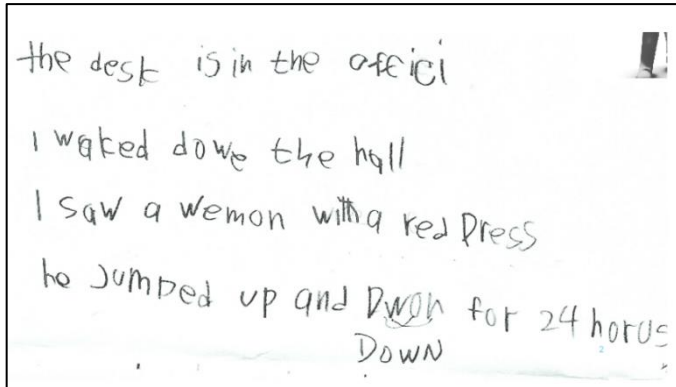 the desk is in the officı
I waked dowe the hall
I saw a wemon with a red Dress
he Jumped up and Dwon for 24 horus
DOWN
2